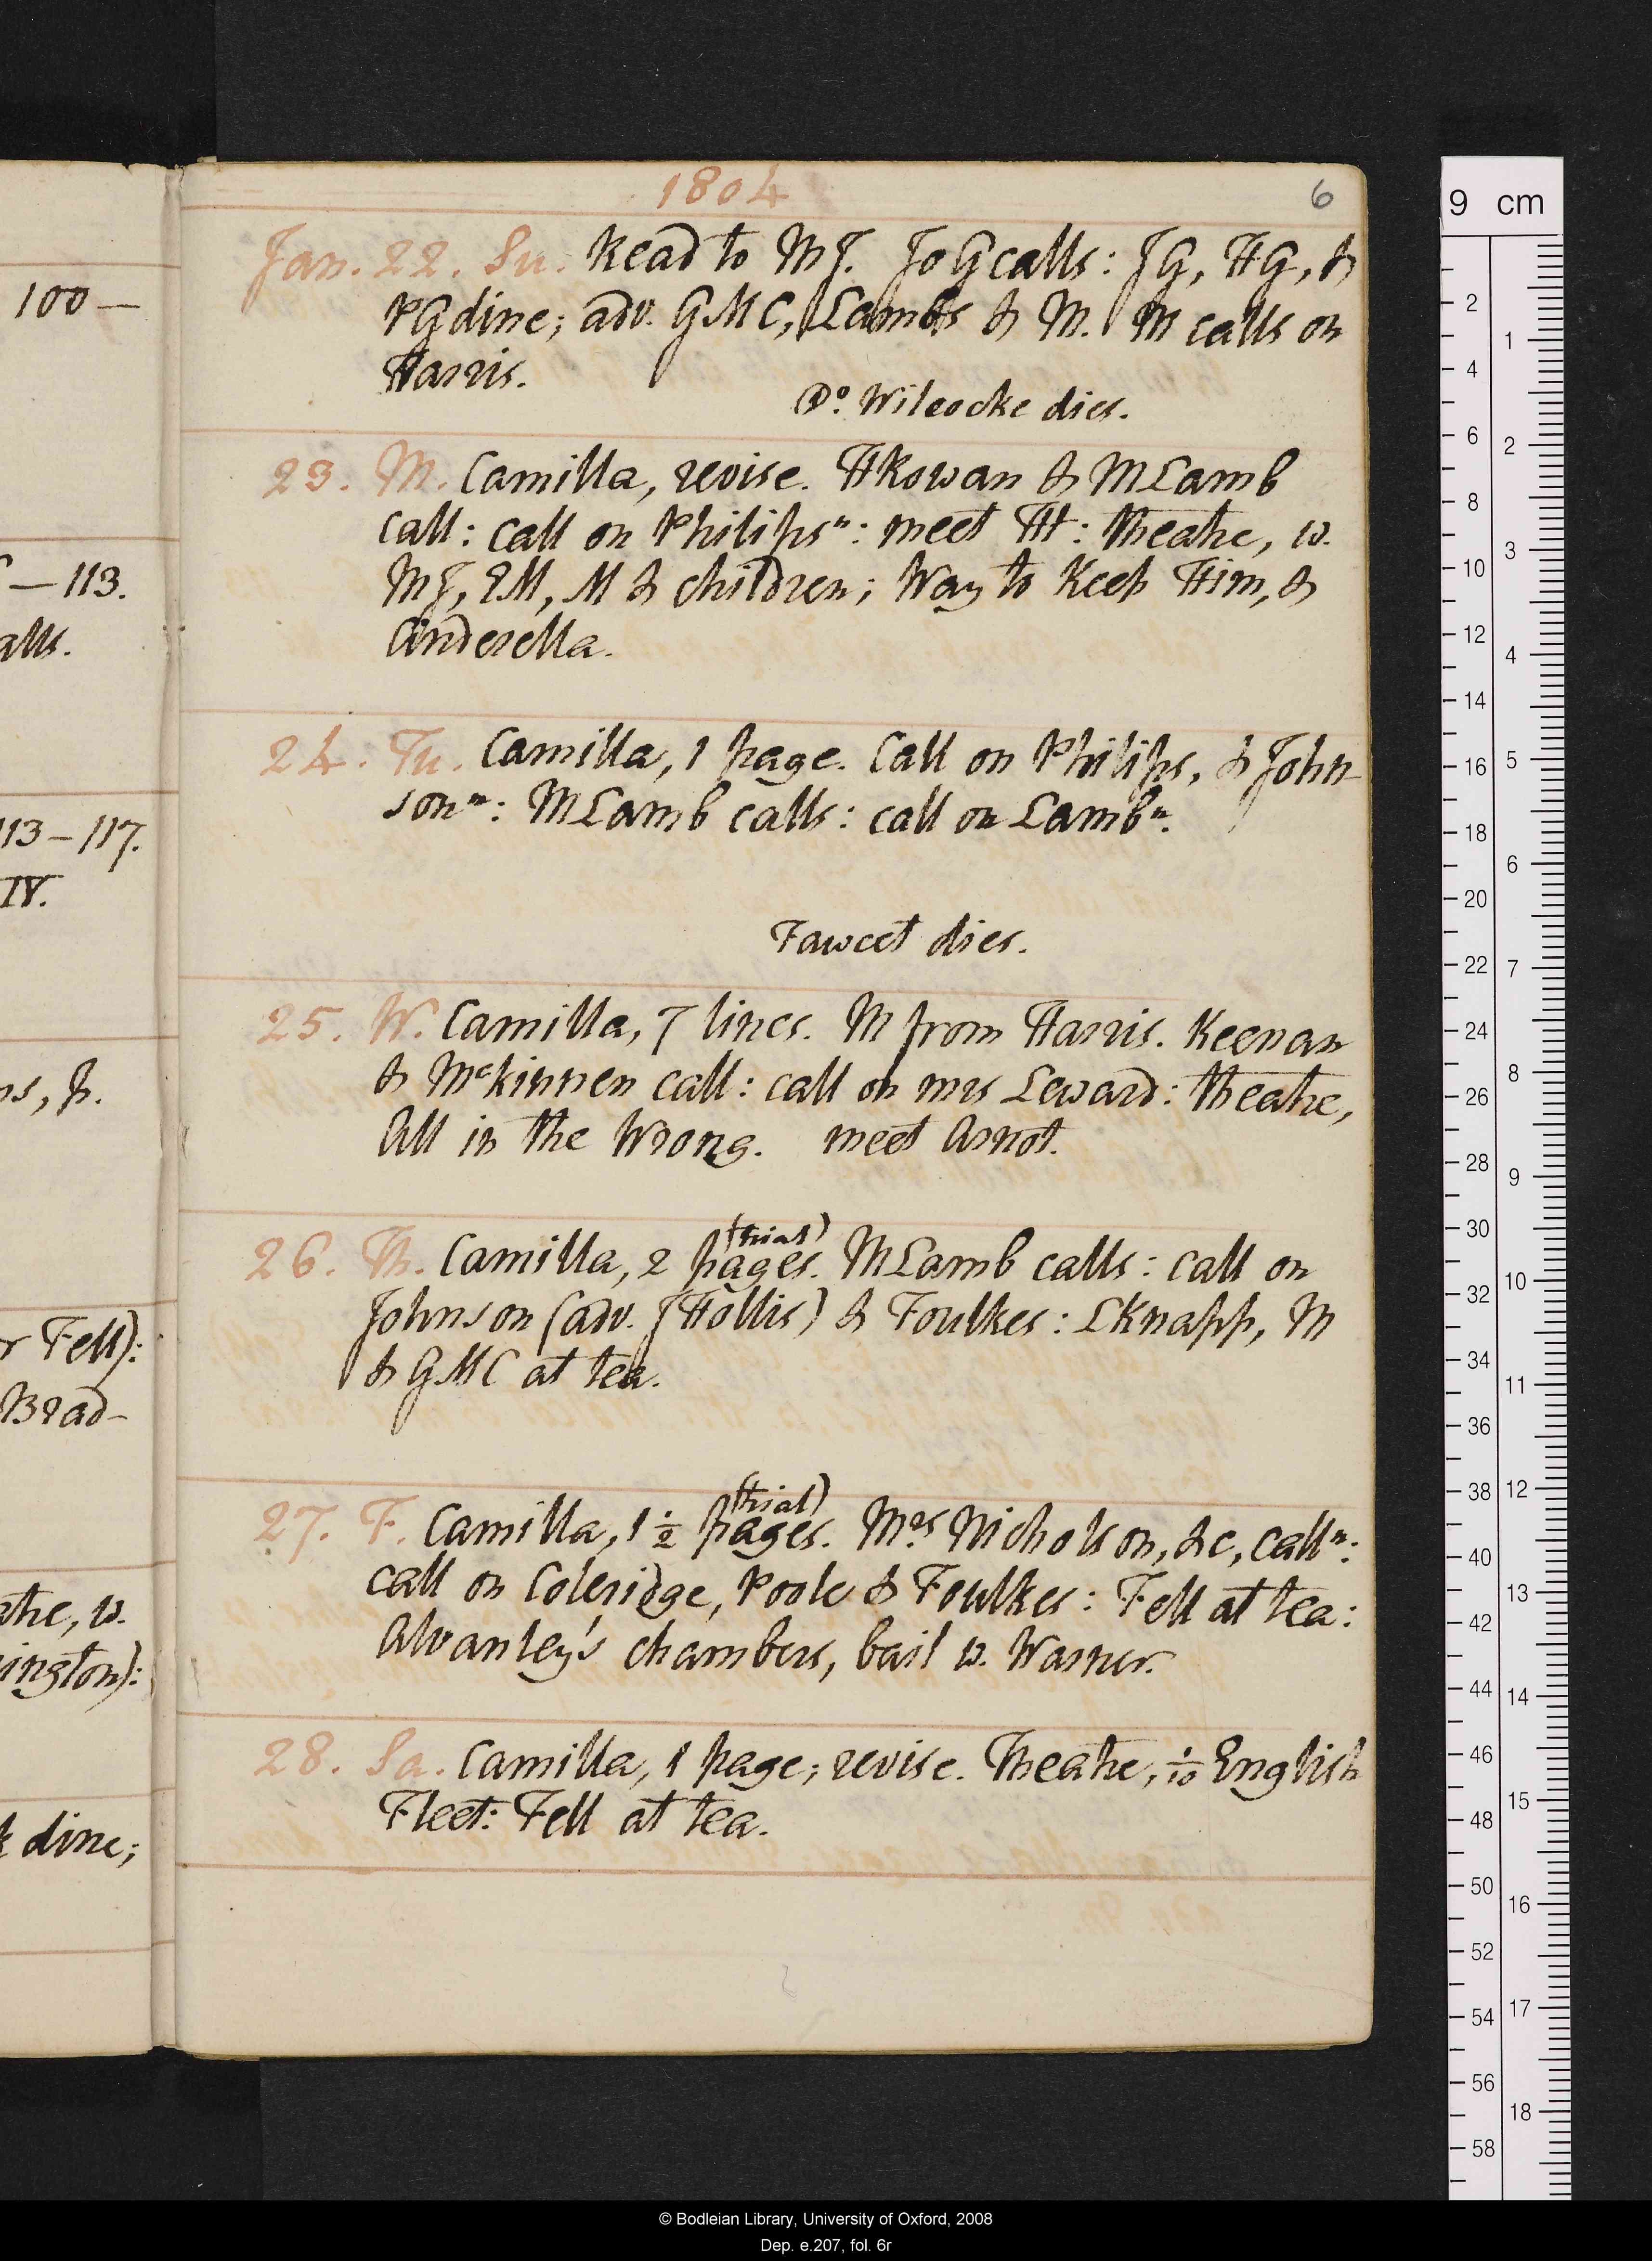 100 —
— 113.
alls.
113 – 117.
IV.
ns, p.
r Fell):
Brad-
atre, w.
ington):
k dine;
1804
6
Jan. 22. Su. Read to MJ. JoG calls: JG, HG, &
PG dine; adv. GMC, Lambs & M. M calls on
Harris.
Do. Wilcocke dies.
23. M. Camilla, revise. HRowan & MLamb
call: call on Philipsn: meet TH: theatre, w.
MJ, EM, M & children; Way to Keep Him, &
Cinderella.
24. Tu. Camilla, 1 page. Call on Philips, & John-
sonn: MLamb calls: call on Lambn.
Fawcet dies.
25. W. Camilla, 7 lines. M from Harris. Keenan
& McKinnen call: call on mrs Leward: theatre,
All in the Wrong. meet Arnot.
(trial)
26. Th. Camilla, 2 pages. MLamb calls: call on
Johnson (adv. JHollis) & Foulkes: LKnapp, M
& GMC at tea.
(trial)
27. F. Camilla, 1 1/2 pages. Mrs Nicholson, &c, calln:
call on Coleridge, Poole & Foulkes: Fell at tea:
Alvanley's chambers, bail w. Warner.
28. Sa. Camilla, 1 page; revise. Theatre, 1/10 English
Fleet: Fell at tea.
9 cm
2
4
6
8
10
12
14
16
18
20
22
24
26
28
30
32
34
36
38
40
42
44
46
48
50
52
54
56
58
1
2
3
4
5
6
7
8
9
10
11
12
13
14
15
16
17
18
© Bodleian Library, University of Oxford, 2008
Dep. e.207, fol. 6r